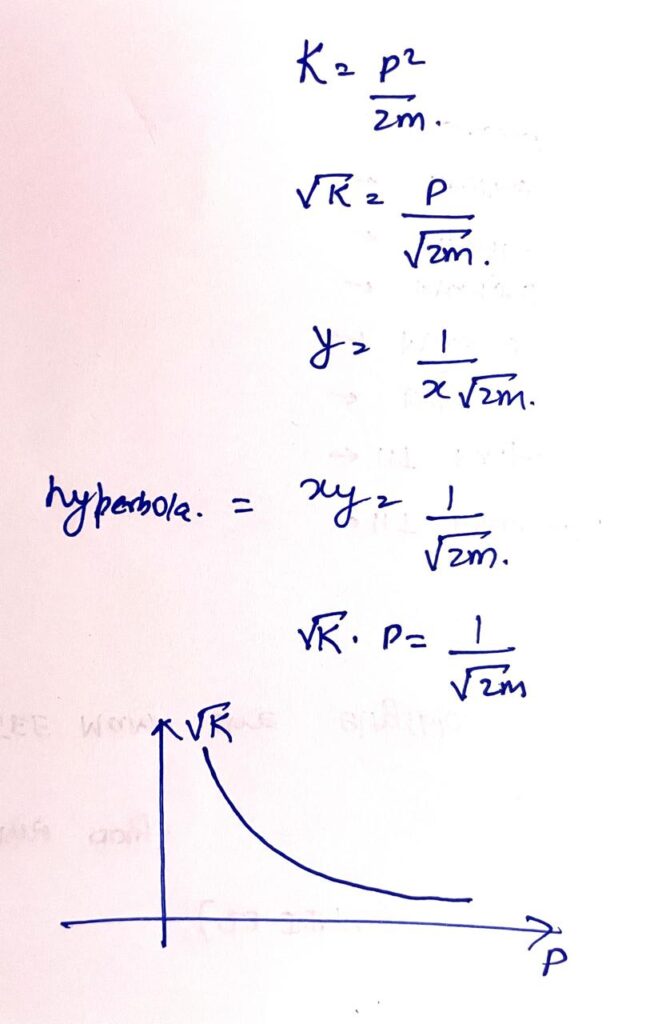 K = p²/2m.
√K = P/√2m.
y = 1/x√2m.
hyperbola. = xy = 1/√2m.
√K · P = 1/√2m
√K
P